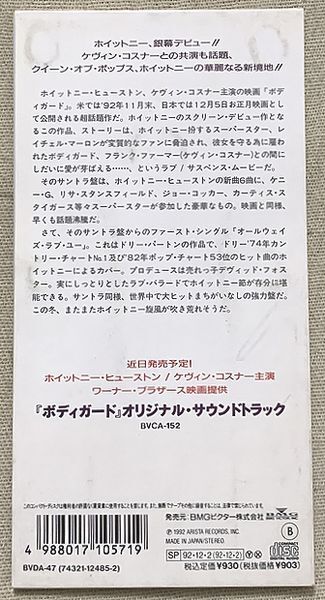 ホイットニー、銀幕デビュー!!
ケヴィン・コスナーとの共演も話題、
クイーン・オブ・ポップス、ホイットニーの華麗なる新境地!!
ホイットニー・ヒューストン、ケヴィン・コスナー主演の映画『ボディ
ガード』。米では'92年11月末、日本では12月5日お正月映画とし
て公開される超話題作だ。ホイットニーのスクリーン・デビュー作とな
るこの作品、ストーリーは、ホイットニー扮するスーパースター、レ
イチェル・マローンが変質的なファンに脅迫され、彼女を守る為に雇
われたボディガード、フランク・ファーマー(ケヴィン・コスナー)との間に
しだいに愛が芽ばえ……、というラブ/サスペンス・ムービーだ。
そのサントラ盤は、ホイットニー・ヒューストンの新曲6曲に、ケニ
ー・G、リサ・スタンスフィールド、ジョー・コッカー、カーティス・ス
タイガース等々スーパースターが参加した豪華なもの。映画と同様、
早くも話題沸騰だ。
さて、そのサントラ盤からのファースト・シングル「オールウェイ
ズ・ラブ・ユー」。これはドリー・パートンの作品で、ドリー'74年カン
トリー・チャートNo.1及び'82年ポップ・チャート53位のヒット曲のホ
イットニーによるカバー。プロデュースは売れっ子デヴィッド・フォス
ター。実にしっとりとしたラブ・バラードでホイットニー節が存分に堪
能できる。サントラ同様、世界中で大ヒットまちがいなしの強力盤だ。
この冬、またまたホイットニー旋風が吹き荒れそうだ。
近日発売予定!
ホイットニー・ヒューストン / ケヴィン・コスナー主演
ワーナー・ブラザース映画提供
『ボディガード』オリジナル・サウンドトラック
BVCA-152
発売元:BMGビクター株式会社
Ⓟ 1992 ARISTA RECORDS, INC.
MADE IN JAPAN/STEREO.
B
SP 92・12・2 (92・12・2)
税込定価¥930(税抜価格¥903)
COMPACT disc DIGITAL AUDIO
4 988017 105719
BVDA-47 (74321-12485-2)